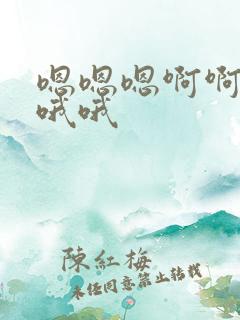 嗯嗯嗯啊啊
哦哦
陳紅梅
未经同意禁止转载